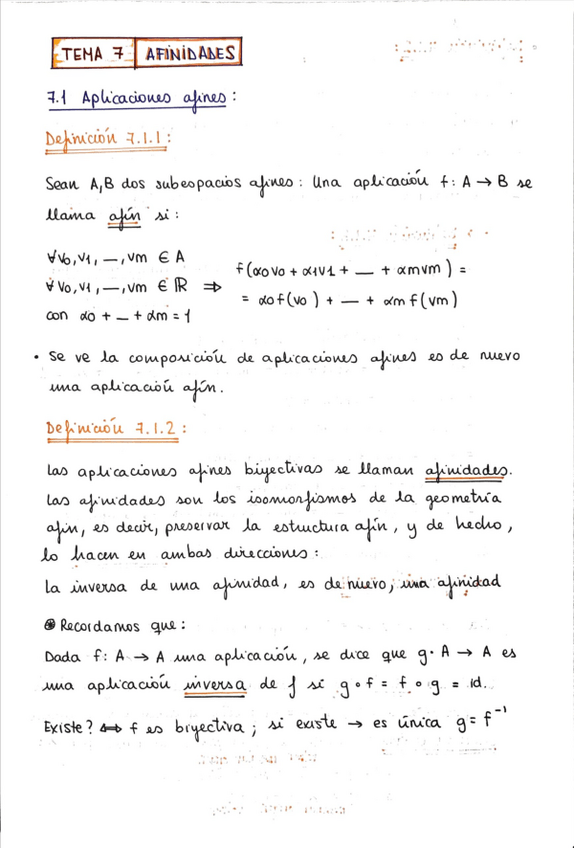 TEMA 7 AFINIDADES
7.1 Aplicaciones afines:
Definición 7.1.1:
Sean A,B dos subespacios afines: Una aplicación f: A → B se
llama afín si:
∀v0,v1, —,vm ∈ A
∀v0,v1, —,vm ∈ ℝ ⇒
con α0 + — + αm = 1
f(α0v0 + α1v1 + — + αmvm) =
= α0f(v0) + — + αmf(vm)
• Se ve la composición de aplicaciones afines es de nuevo
una aplicación afín.
Definición 7.1.2:
Las aplicaciones afines biyectivas se llaman afinidades.
Las afinidades son los isomorfismos de la geometría
afín, es decir, preservar la estructura afín, y de hecho,
lo hacen en ambas direcciones:
La inversa de una afinidad, es de nuevo, una afinidad
⊛ Recordamos que:
Dada f: A → A una aplicación, se dice que g· A → A es
una aplicación inversa de f si g∘f = f∘g = id.
Existe? ⟺ f es biyectiva; si existe → es única g = f⁻¹